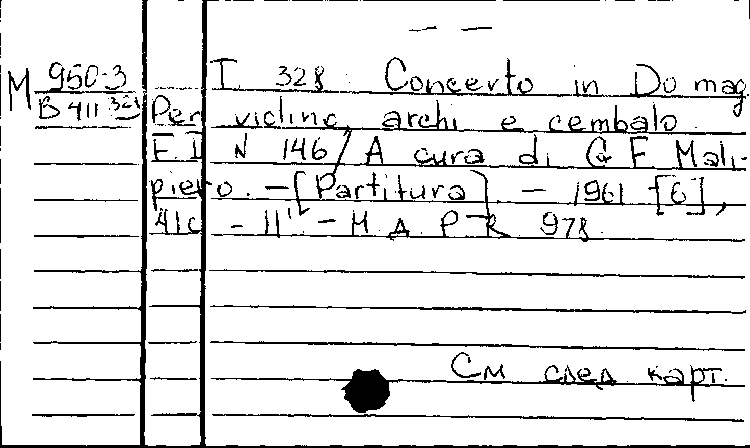 — —
M 950-3 T. 328. Concerto in Do mag.
B 411 328 Per violino, archi e cembalo.
F I N 146 / A cura di G F Mali-
piero. – [Partitura]. – 1961 [6],
41с – 11" – Н Д P-R 978.
См след карт.